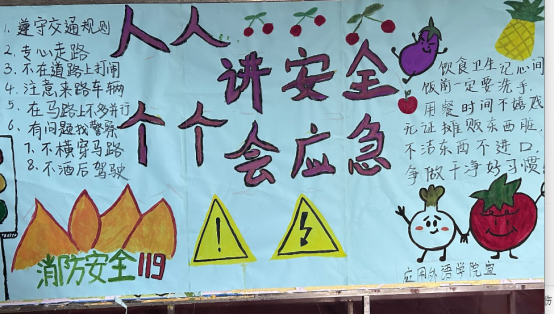 1. 遵守交通规则
2. 专心走路
3. 不在道路上打闹
4. 注意来路车辆
5. 在马路上不多并行
6. 有问题找警察
7. 不横穿马路
8. 不酒后驾驶
人人讲安全
个个会应急
饮食卫生记心间
饭前一定要洗手
用餐时间不嬉戏
无证摊贩东西脏,
不洁东西不进口,
争做干净好习惯
消防安全119
应用外语学院宣